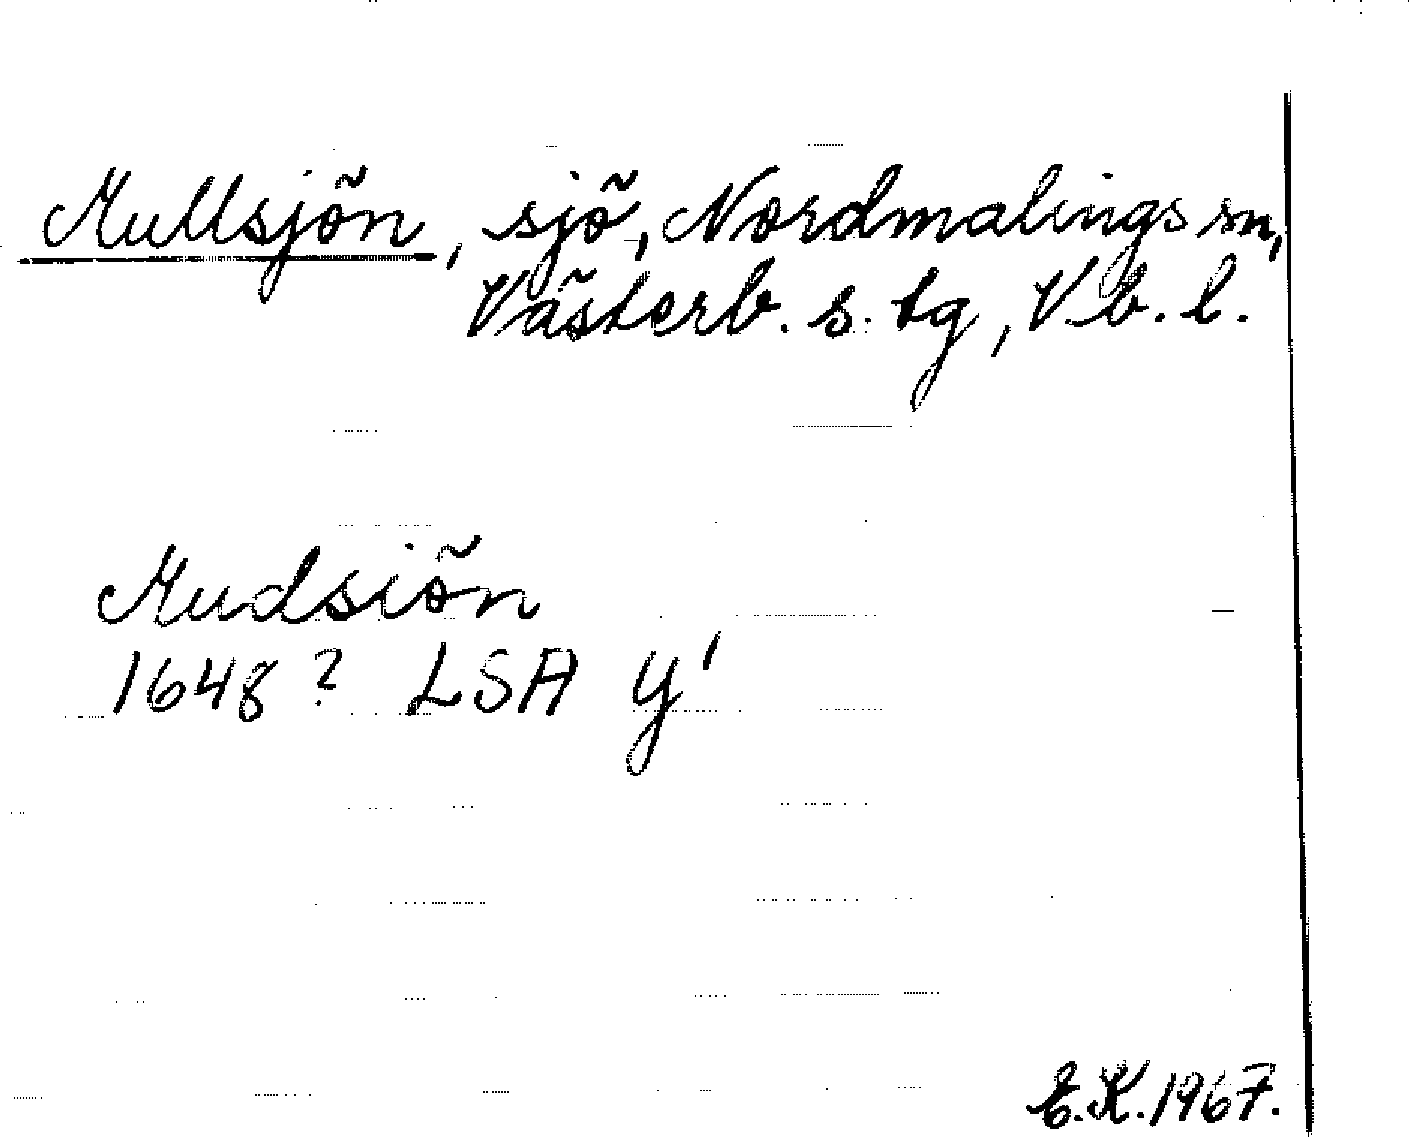 Mullsjön, sjö, Nordmalings sn,
Västerb. s. tg, Vb. l.
Mudsiön
1648? LSA y¹
E.K. 1967.